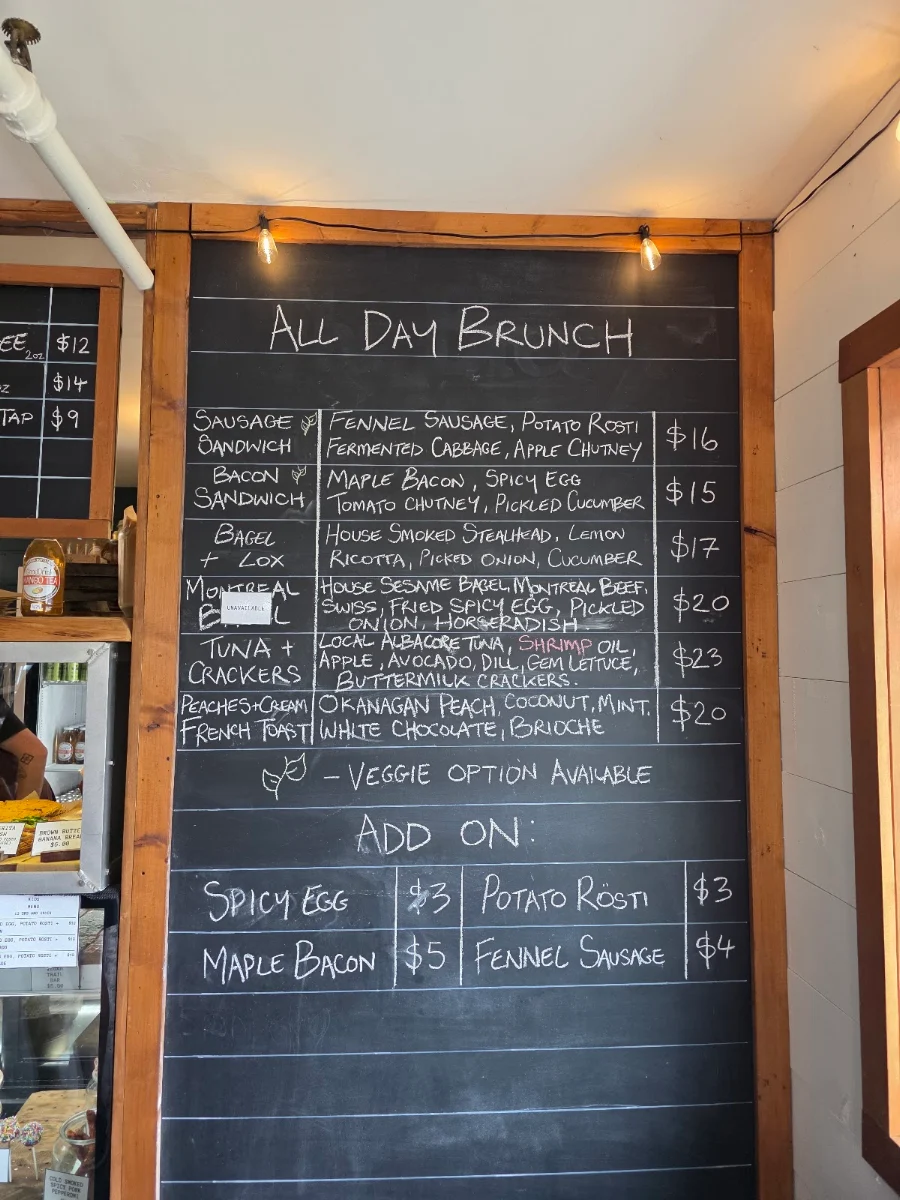 ALL DAY BRUNCH
SAUSAGE SANDWICH
FENNEL SAUSAGE, POTATO ROSTI
FERMENTED CABBAGE, APPLE CHUTNEY
$16
BACON SANDWICH
MAPLE BACON, SPICY EGG
TOMATO CHUTNEY, PICKLED CUCUMBER
$15
BAGEL + LOX
HOUSE SMOKED STEALHEAD, LEMON
RICOTTA, PICKED ONION, CUCUMBER
$17
MONTREAL
UNAVAILABLE
HOUSE SESAME BAGEL, MONTREAL BEEF,
SWISS, FRIED SPICY EGG, PICKLED
ONION, HORSERADISH
$20
TUNA + CRACKERS
LOCAL ALBACORE TUNA, SHRIMP OIL,
APPLE, AVOCADO, DILL, GEM LETTUCE,
BUTTERMILK CRACKERS.
$23
PEACHES+CREAM
FRENCH TOAST
OKANAGAN PEACH, COCONUT, MINT,
WHITE CHOCOLATE, BRIOCHE
$20
- VEGGIE OPTION AVAILABLE
ADD ON:
SPICY EGG $3 POTATO RÖSTI $3
MAPLE BACON $5 FENNEL SAUSAGE $4
2OZ $12
$14
TAP $9
MANGO TEA
BROWN BUTTER
BANANA BREAD
$5.00
EGG, POTATO ROSTI +
EGG, POTATO ROSTI +
EGG, POTATO ROSTI +
COLD SMOKED
SPICY PORK
PEPPERONI